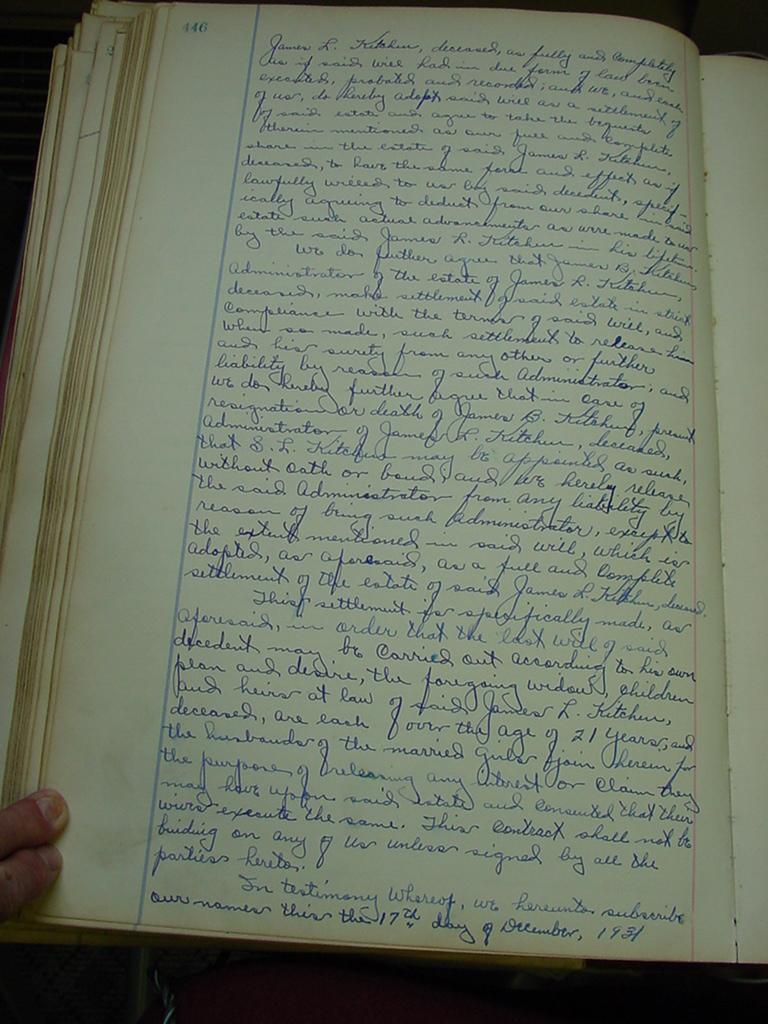 446
James L. Kitchen, deceased, as fully and completely
as if said will had in due form of law been
executed, probated and recorded; and we, and each
of us, do hereby adopt said will as a settlement of
of said estate and agree to take the bequests
therein mentioned as our full and complete
share in the estate of said James L. Kitchen,
deceased, to have the same form and effect as if
lawfully willed to us by said decedent, specif-
ically agreeing to deduct from our share in said
estate such actual advancements as were made to us
by the said James L. Kitchen in his lifetime.
We do further agree that James B. Kitchen,
Administrator of the estate of James L. Kitchen,
deceased, make settlement of said estate in strict
compliance with the terms of said will, and
when so made, such settlement to release him
and his surety from any other or further
liability by reason of such Administrator; and
we do hereby further agree that in case of
resignation or death of James B. Kitchen, present
Administrator of James L. Kitchen, deceased,
that S. L. Kitchen may be appointed as such,
without oath or bond, and we hereby release
the said Administrator from any liability by
reason of being such Administrator, except to
the extent mentioned in said will, which is
adopted, as aforesaid, as a full and complete
settlement of the estate of said James L. Kitchen, deceased.
This settlement is specifically made, as
aforesaid, in order that the last will of said
decedent may be carried out according to his own
plan and desire, the foregoing widow, children
and heirs at law of said James L. Kitchen,
deceased, are each over the age of 21 years, and
the husbands of the married girls join herein for
the purpose of releasing any interest or claim they
may have upon said estate and consented that their
wives execute the same. This contract shall not be
binding on any of us unless signed by all the
parties hereto.
In testimony whereof, we hereunto subscribe
our names this the 17th day of December, 1931